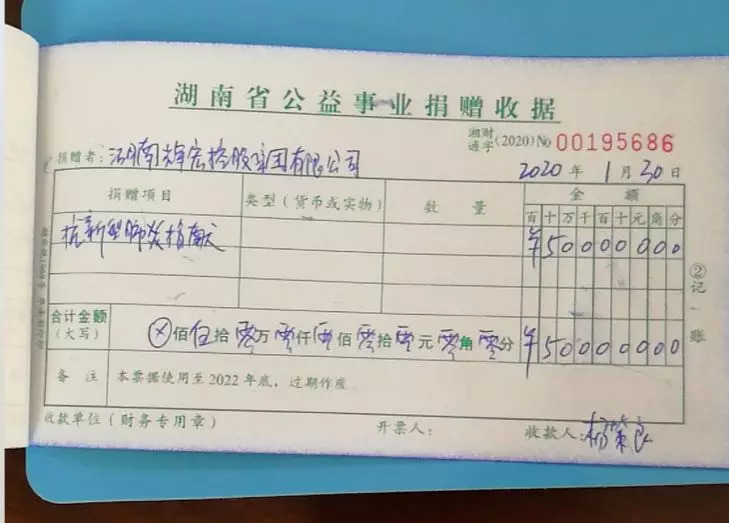 湖南省公益事业捐赠收据
湘财通字(2020) No 00195686
捐赠者：湖南辉宏控股集团有限公司
2020 年 1 月 30 日
捐赠项目 类型（货币或实物） 数量 金额
百 十 万 千 百 十 元 角 分
抗新型肺炎捐献 ¥ 5 0 0 0 0 0 0 0
合计金额（大写） ⊗佰 伍拾 零万 零仟 零佰 零拾 零元 零角 零分 ¥ 5 0 0 0 0 0 0 0
②记账
备注 本票据使用至2022年底，过期作废
收款单位（财务专用章） 开票人： 收款人：